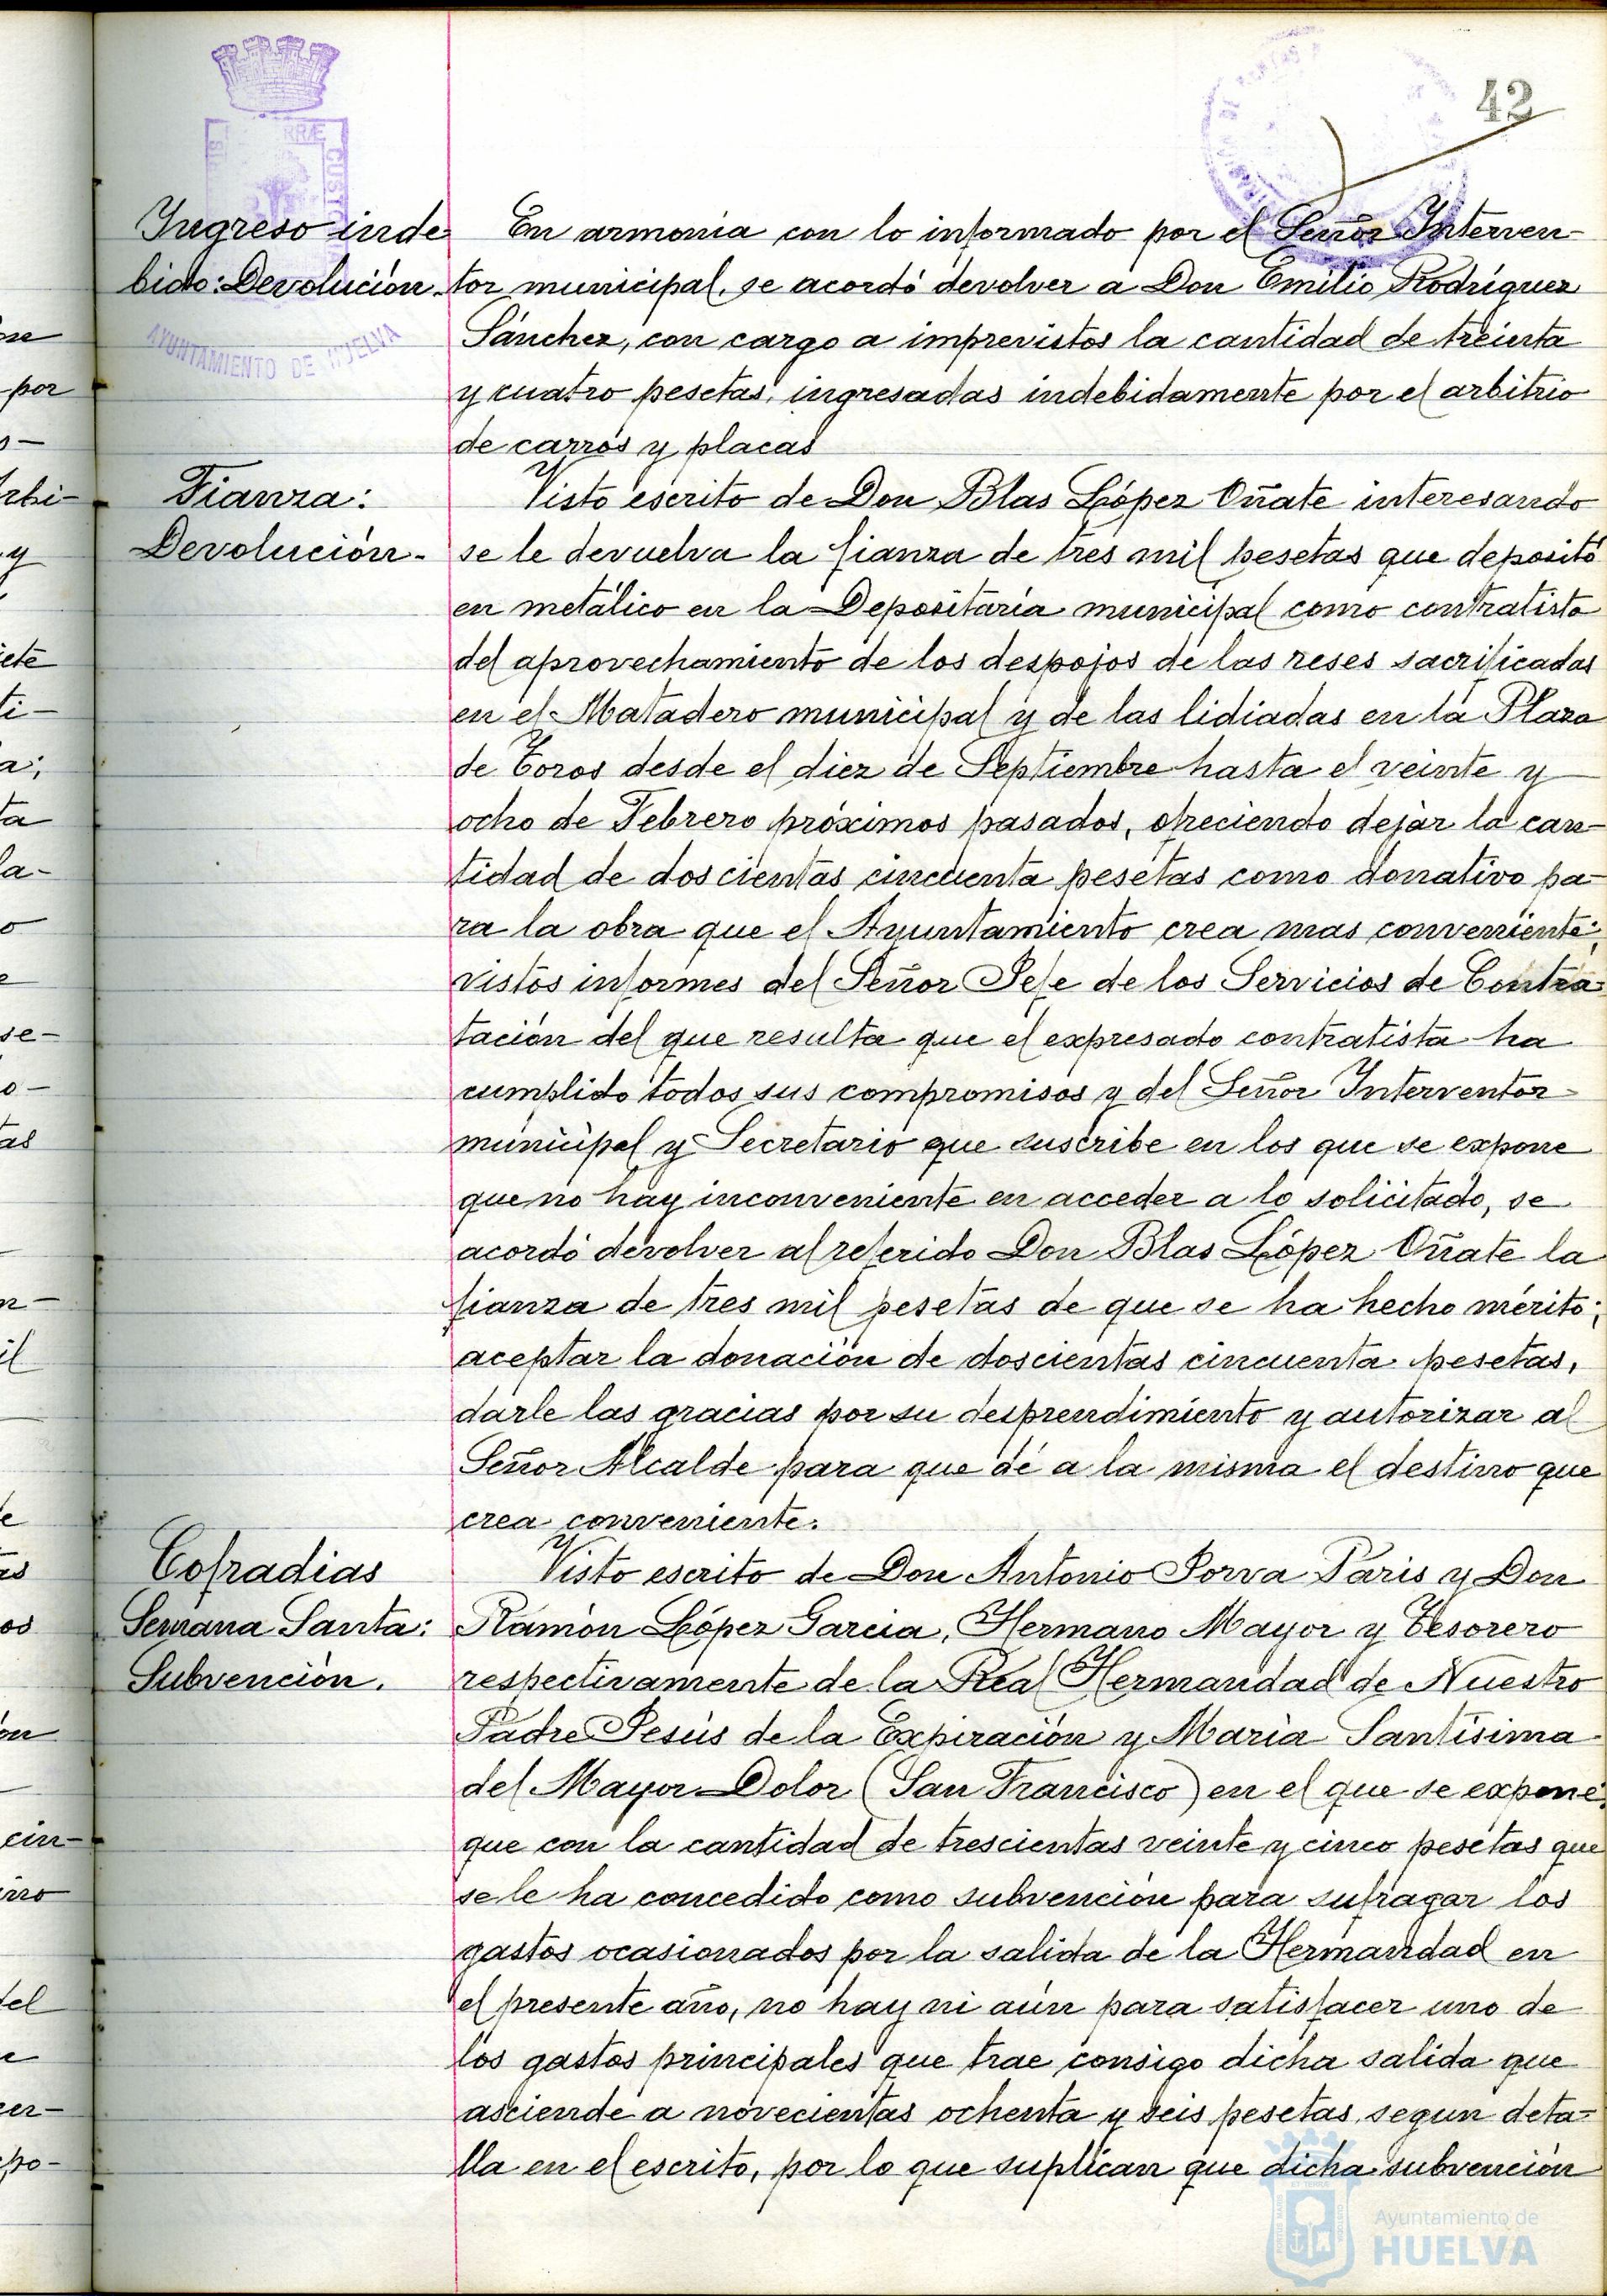 42
Ingreso inde
bido: Devolución.
En armonia con lo informado por el Señor Interven-
tor municipal, se acordó devolver a Don Emilio Rodríguez
Sánchez, con cargo a imprevistos la cantidad de treinta
y cuatro pesetas, ingresadas indebidamente por el arbitrio
de carros y placas
AYUNTAMIENTO DE HUELVA
Fianza:
Devolución.
Visto escrito de Don Blas López Oñate interesando
se le devuelva la fianza de tres mil pesetas que depositó
en metálico en la Depositaría municipal como contratista
del aprovechamiento de los despojos de las reses sacrificadas
en el Matadero municipal y de las lidiadas en la Plaza
de Toros desde el diez de Septiembre hasta el veinte y
ocho de Febrero próximos pasados, ofreciendo dejar la can-
tidad de doscientas cincuenta pesetas como donativo pa-
ra la obra que el Ayuntamiento crea mas conveniente;
vistos informes del Señor Jefe de los Servicios de Contra-
tación del que resulta que el expresado contratista ha
cumplido todos sus compromisos y del Señor Interventor
municipal y Secretario que suscribe en los que se expone
que no hay inconveniente en acceder a lo solicitado, se
acordó devolver al referido Don Blas López Oñate la
fianza de tres mil pesetas de que se ha hecho mérito;
aceptar la donación de doscientas cincuenta pesetas,
darle las gracias por su desprendimiento y autorizar al
Señor Alcalde para que dé a la misma el destino que
crea conveniente.
Cofradias
Semana Santa:
Subvención.
Visto escrito de Don Antonio Jorva Paris y Don
Ramón López Garcia, Hermano Mayor y Tesorero
respectivamente de la Real Hermandad de Nuestro
Padre Jesús de la Expiración y Maria Santísima
del Mayor Dolor (San Francisco) en el que se expone
que con la cantidad de trescientas veinte y cinco pesetas que
se le ha concedido como subvención para sufragar los
gastos ocasionados por la salida de la Hermandad en
el presente año, no hay ni aún para satisfacer uno de
los gastos principales que trae consigo dicha salida que
asciende a novecientas ochenta y seis pesetas, segun deta-
lla en el escrito, por lo que suplican que dicha subvención
Ayuntamiento de
HUELVA